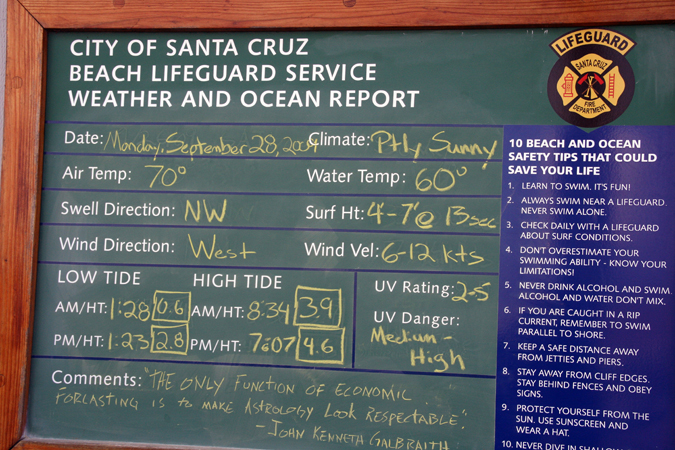 CITY OF SANTA CRUZ
BEACH LIFEGUARD SERVICE
WEATHER AND OCEAN REPORT
LIFEGUARD
SANTA CRUZ
FIRE
DEPARTMENT
Date: Monday, September 28, 2009 Climate: Ptly Sunny
Air Temp: 70° Water Temp: 60°
Swell Direction: NW Surf Ht: 4'-7' @ 13 sec
Wind Direction: West Wind Vel: 6-12 kts
LOW TIDE HIGH TIDE UV Rating: 2-5
AM/HT: 1:28 0.6 AM/HT: 8:34 3.9
UV Danger: Medium -
High
PM/HT: 1:23 2.8 PM/HT: 7:07 4.6
Comments: "THE ONLY FUNCTION OF ECONOMIC
FORCASTING IS to MAKE ASTROLOGY LOOK RESPECTABLE".
- JOHN KENNETH GALBRAITH
10 BEACH AND OCEAN
SAFETY TIPS THAT COULD
SAVE YOUR LIFE
1. LEARN TO SWIM. IT'S FUN!
2. ALWAYS SWIM NEAR A LIFEGUARD.
NEVER SWIM ALONE.
3. CHECK DAILY WITH A LIFEGUARD
ABOUT SURF CONDITIONS.
4. DON'T OVERESTIMATE YOUR
SWIMMING ABILITY - KNOW YOUR
LIMITATIONS!
5. NEVER DRINK ALCOHOL AND SWIM.
ALCOHOL AND WATER DON'T MIX.
6. IF YOU ARE CAUGHT IN A RIP
CURRENT, REMEMBER TO SWIM
PARALLEL TO SHORE.
7. KEEP A SAFE DISTANCE AWAY
FROM JETTIES AND PIERS.
8. STAY AWAY FROM CLIFF EDGES.
STAY BEHIND FENCES AND OBEY
SIGNS.
9. PROTECT YOURSELF FROM THE
SUN. USE SUNSCREEN AND
WEAR A HAT.
10. NEVER DIVE IN SHALLOW